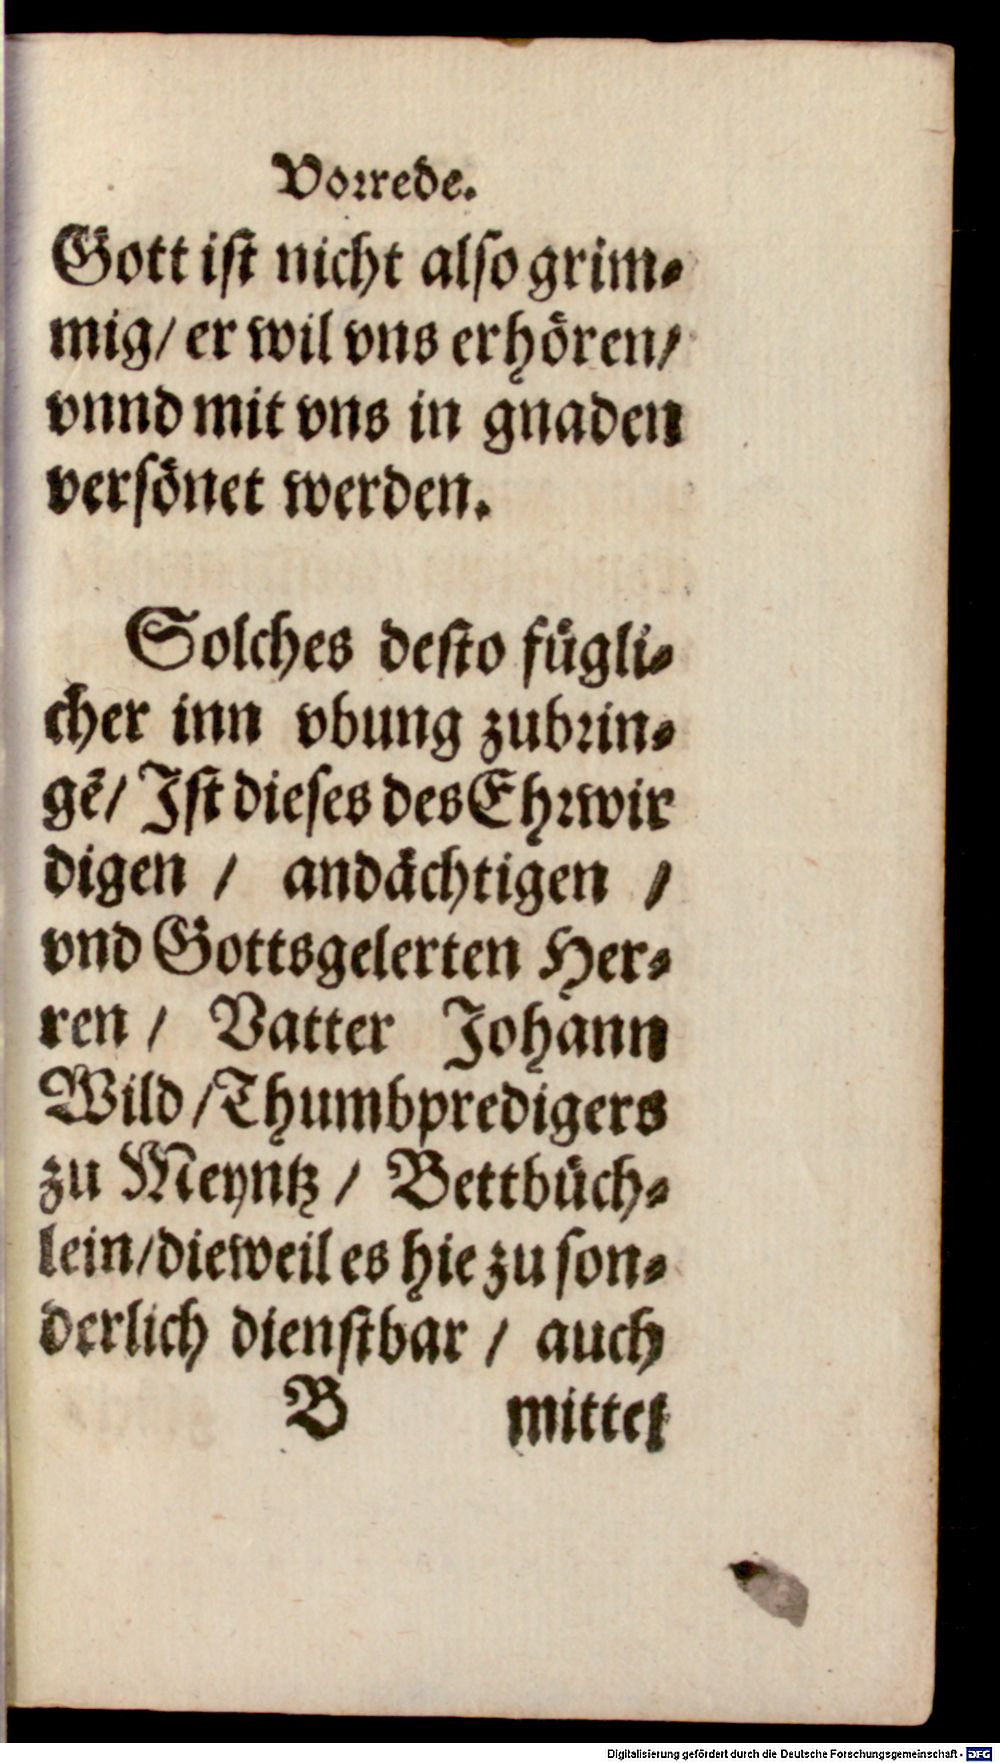 Vorrede.
Gott ist nicht also grim⸗
mig/ er wil vns erhören/
vnnd mit vns in gnaden
versönet werden.
Solches desto fügli⸗
cher inn vbung zubrin⸗
gẽ/ Ist dieses des Ehrwir
digen / andächtigen /
vnd Gottsgelerten Her⸗
ren / Vatter Johann
Wild /Thumbpredigers
zu Meyntz / Bettbüch⸗
lein/dieweil es hie zu son⸗
derlich dienstbar / auch
B mittel
Digitalisierung gefördert durch die Deutsche Forschungsgemeinschaft - DFG